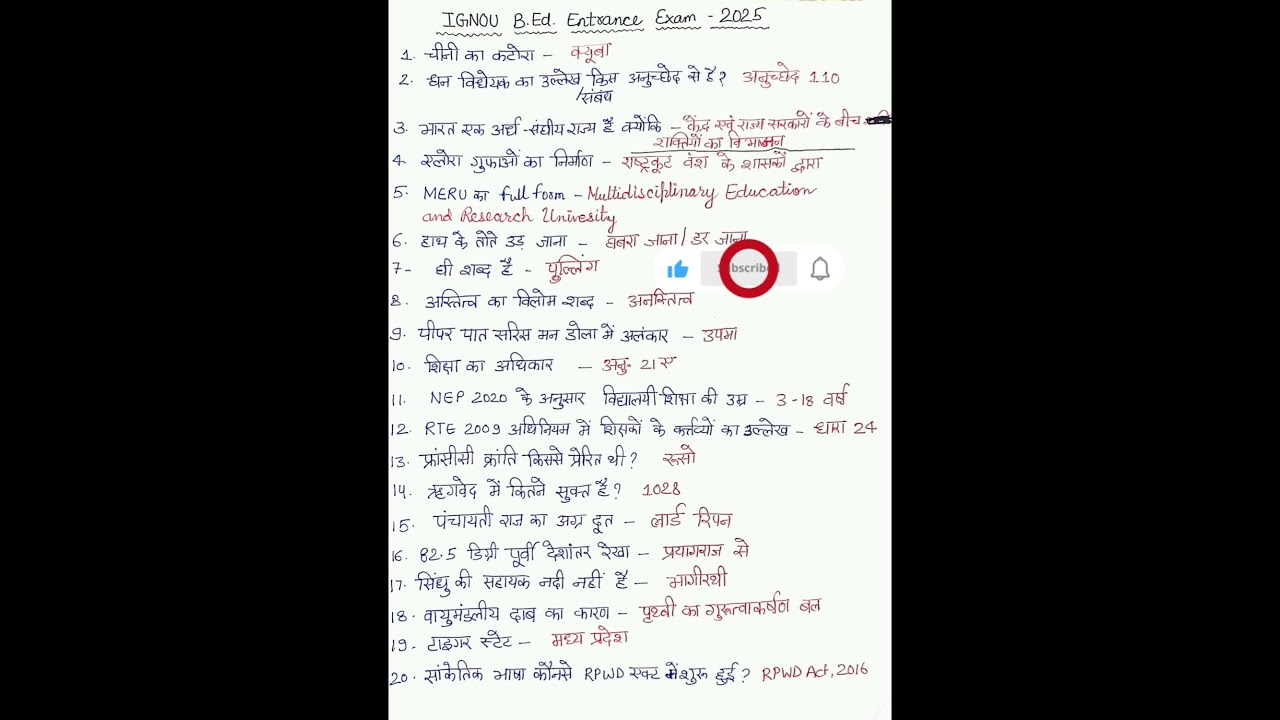 IGNOU B.Ed. Entrance Exam - 2025
1. चीनी का कटोरा - क्यूबा
2. धन विधेयक का उल्लेख किस अनुच्छेद से है? अनुच्छेद 110
/संबंध
3. भारत एक अर्ध-संघीय राज्य है क्योंकि - केंद्र एवं राज्य सरकारों के बीच
शक्तियों का विभाजन
4. एलोरा गुफाओं का निर्माण - राष्ट्रकूट वंश के शासकों द्वारा
5. MERU का full form - Multidisciplinary Education
and Research Univesity
6. हाथ के तोते उड़ जाना - घबरा जाना/डर जाना
7- घी शब्द है - पुल्लिंग
Subscribed
8. अस्तित्व का विलोम शब्द - अनस्तित्व
9. पीपर पात सरिस मन डोला में अलंकार - उपमा
10. शिक्षा का अधिकार - अनु. 21ए
11. NEP 2020 के अनुसार विद्यालयी शिक्षा की उम्र - 3-18 वर्ष
12. RTE 2009 अधिनियम में शिक्षकों के कर्त्तव्यों का उल्लेख - धारा 24
13. फ्रांसीसी क्रांति किससे प्रेरित थी? रूसो
14. ऋग्वेद में कितने सुक्त है? 1028
15. पंचायती राज का अग्र दूत - लार्ड रिपन
16. 82.5 डिग्री पूर्वी देशांतर रेखा - प्रयागराज से
17. सिंधु की सहायक नदी नहीं है - भागीरथी
18. वायुमंडलीय दाब का कारण - पृथ्वी का गुरुत्वाकर्षण बल
19. टाइगर स्टेट - मध्य प्रदेश
20. सांकेतिक भाषा कौनसे RPWD एक्ट में शुरू हुई? RPWD Act, 2016